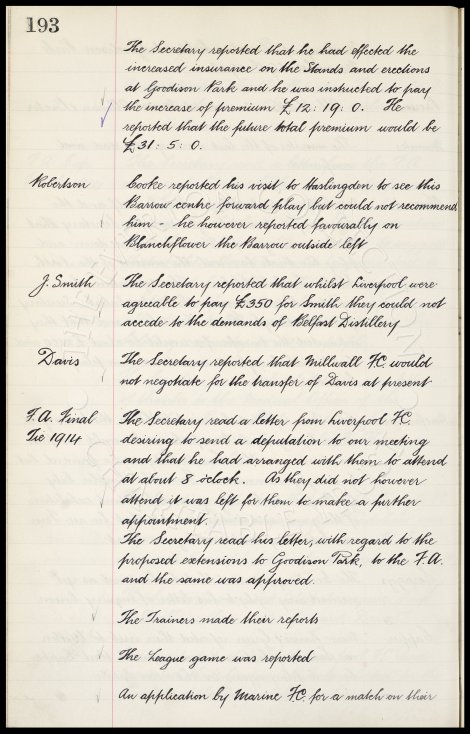 193
The Secretary reported that he had effected the
increased insurance on the Stands and erections
at Goodison Park and he was instructed to pay
the increase of premium £12: 19: 0. He
reported that the future total premium would be
£31: 5: 0.
Robertson Cooke reported his visit to Haslingden to see this
Barrow centre forward play but could not recommend
him - he however reported favourably on
Blanchflower the Barrow outside left
J. Smith The Secretary reported that whilst Liverpool were
agreeable to pay £350 for Smith they could not
accede to the demands of Belfast Distillery
Davis The Secretary reported that Millwall F.C. would
not negotiate for the transfer of Davis at present
F.A. Final The Secretary read a letter from Liverpool F.C.
Tie 1914 desiring to send a deputation to our meeting
and that he had arranged with them to attend
at about 8 o'clock. As they did not however
attend it was left for them to make a further
appointment.
The Secretary read his letter, with regard to the
proposed extensions to Goodison Park, to the F.A.
and the same was approved.
The Trainers made their reports
The League game was reported
An application by Marine F.C. for a match on their